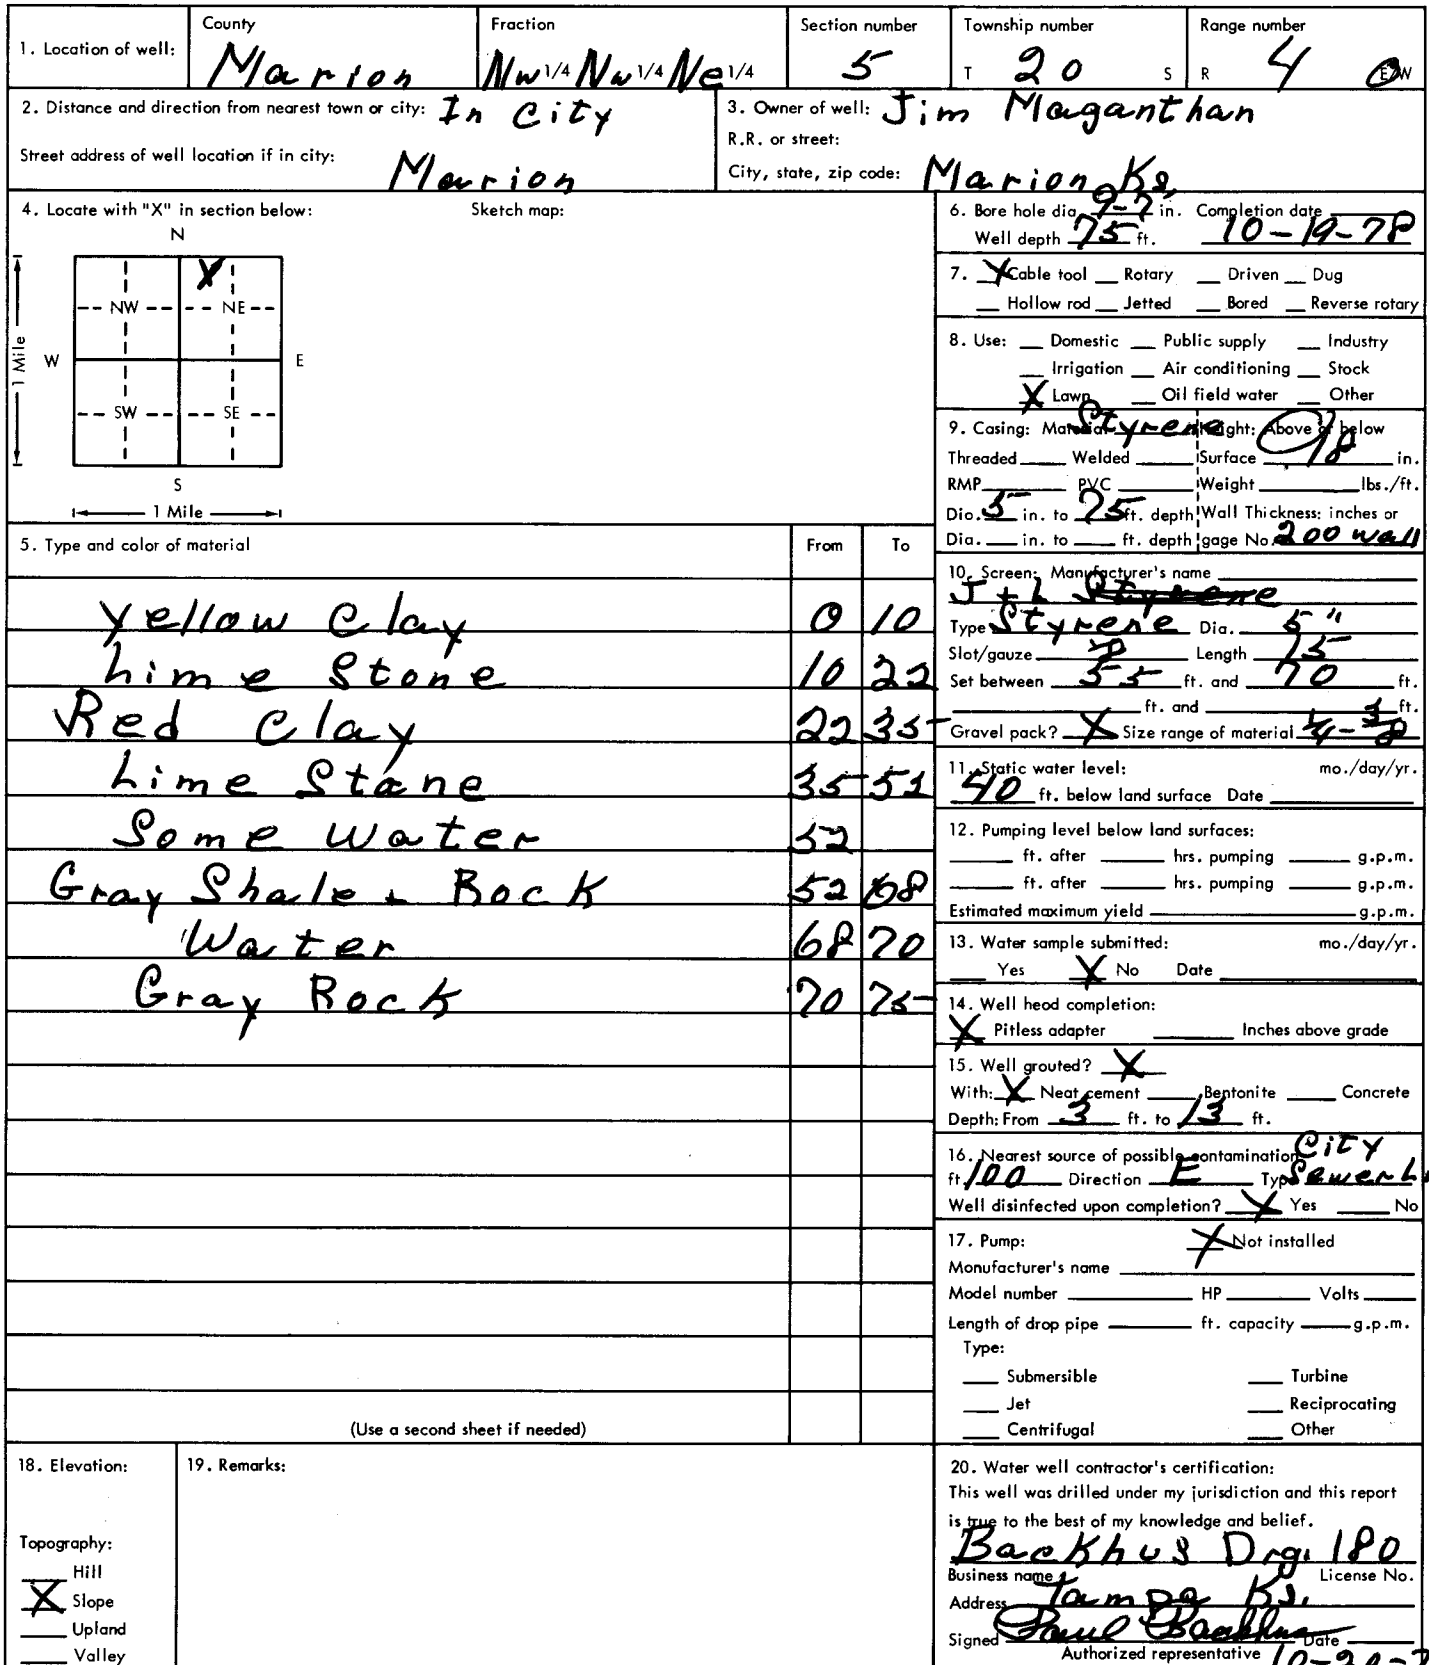 1. Location of well: County Marion Fraction Nw 1/4 Nw 1/4 Ne 1/4 Section number 5 Township number T 20 S Range number R 4 E/W
2. Distance and direction from nearest town or city: In City
Street address of well location if in city: Marion
3. Owner of well: Jim Maganthan
R.R. or street:
City, state, zip code: Marion, Ks,
4. Locate with "X" in section below: Sketch map:
N
X
NW NE
1 Mile W E
SW SE
S
1 Mile
5. Type and color of material From To
Yellow Clay 0 10
Lime Stone 10 22
Red Clay 22 35
Lime Stone 35 52
Some Water 52
Gray Shale + Rock 52 68
Water 68 70
Gray Rock 70 75
(Use a second sheet if needed)
6. Bore hole dia. 9-7 in. Completion date
Well depth 75 ft. 10-19-78
7. X Cable tool Rotary Driven Dug
Hollow rod Jetted Bored Reverse rotary
8. Use: Domestic Public supply Industry
Irrigation Air conditioning Stock
X Lawn Oil field water Other
9. Casing: Material Styrene Height: Above or below
Threaded Welded Surface 18 in.
RMP PVC Weight lbs./ft.
Dia. 5 in. to 75 ft. depth Wall Thickness: inches or
Dia. in. to ft. depth gage No. 200 wall
10. Screen: Manufacturer's name
J + L Styrene
Type Styrene Dia. 5"
Slot/gauze Length 15
Set between 55 ft. and 70 ft.
ft. and ft.
Gravel pack? X Size range of material 1/4 - 3/8
11. Static water level: mo./day/yr.
40 ft. below land surface Date
12. Pumping level below land surfaces:
ft. after hrs. pumping g.p.m.
ft. after hrs. pumping g.p.m.
Estimated maximum yield g.p.m.
13. Water sample submitted: mo./day/yr.
Yes X No Date
14. Well head completion:
X Pitless adapter Inches above grade
15. Well grouted? X
With: X Neat cement Bentonite Concrete
Depth: From 3 ft. to 13 ft.
16. Nearest source of possible contamination: City
ft. 100 Direction E Type Sewer L
Well disinfected upon completion? X Yes No
17. Pump: X Not installed
Manufacturer's name
Model number HP Volts
Length of drop pipe ft. capacity g.p.m.
Type:
Submersible Turbine
Jet Reciprocating
Centrifugal Other
18. Elevation:
Topography:
Hill
X Slope
Upland
Valley
19. Remarks:
20. Water well contractor's certification:
This well was drilled under my jurisdiction and this report
is true to the best of my knowledge and belief.
Backhus Drg. 180
Business name License No.
Address Tampa Ks.
Signed Paul Backhus Date
Authorized representative 10-20-7